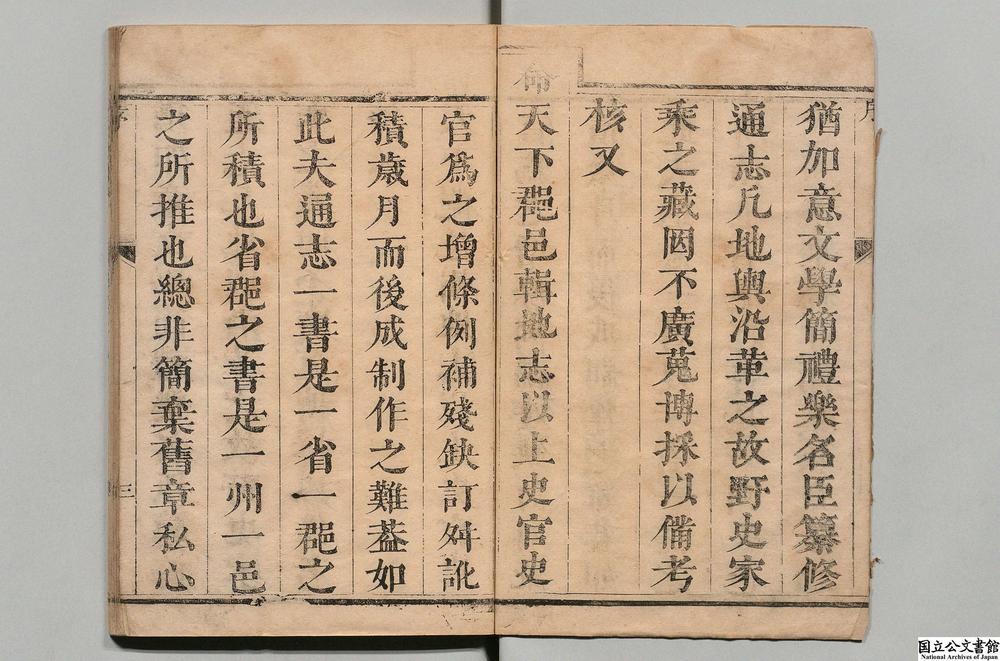 猶加意文學簡禮樂名臣纂修
通志凡地輿沿革之故野史家
乘之藏罔不廣蒐博採以備考
核又
命天下郡邑輯地志以上史官史
官爲之增條例補殘缺訂舛訛
積歲月而後成制作之難葢如
此夫通志一書是一省一郡之
所積也省郡之書是一州一邑
之所推也總非簡棄舊章私心
序
三
国立公文書館
National Archives of Japan